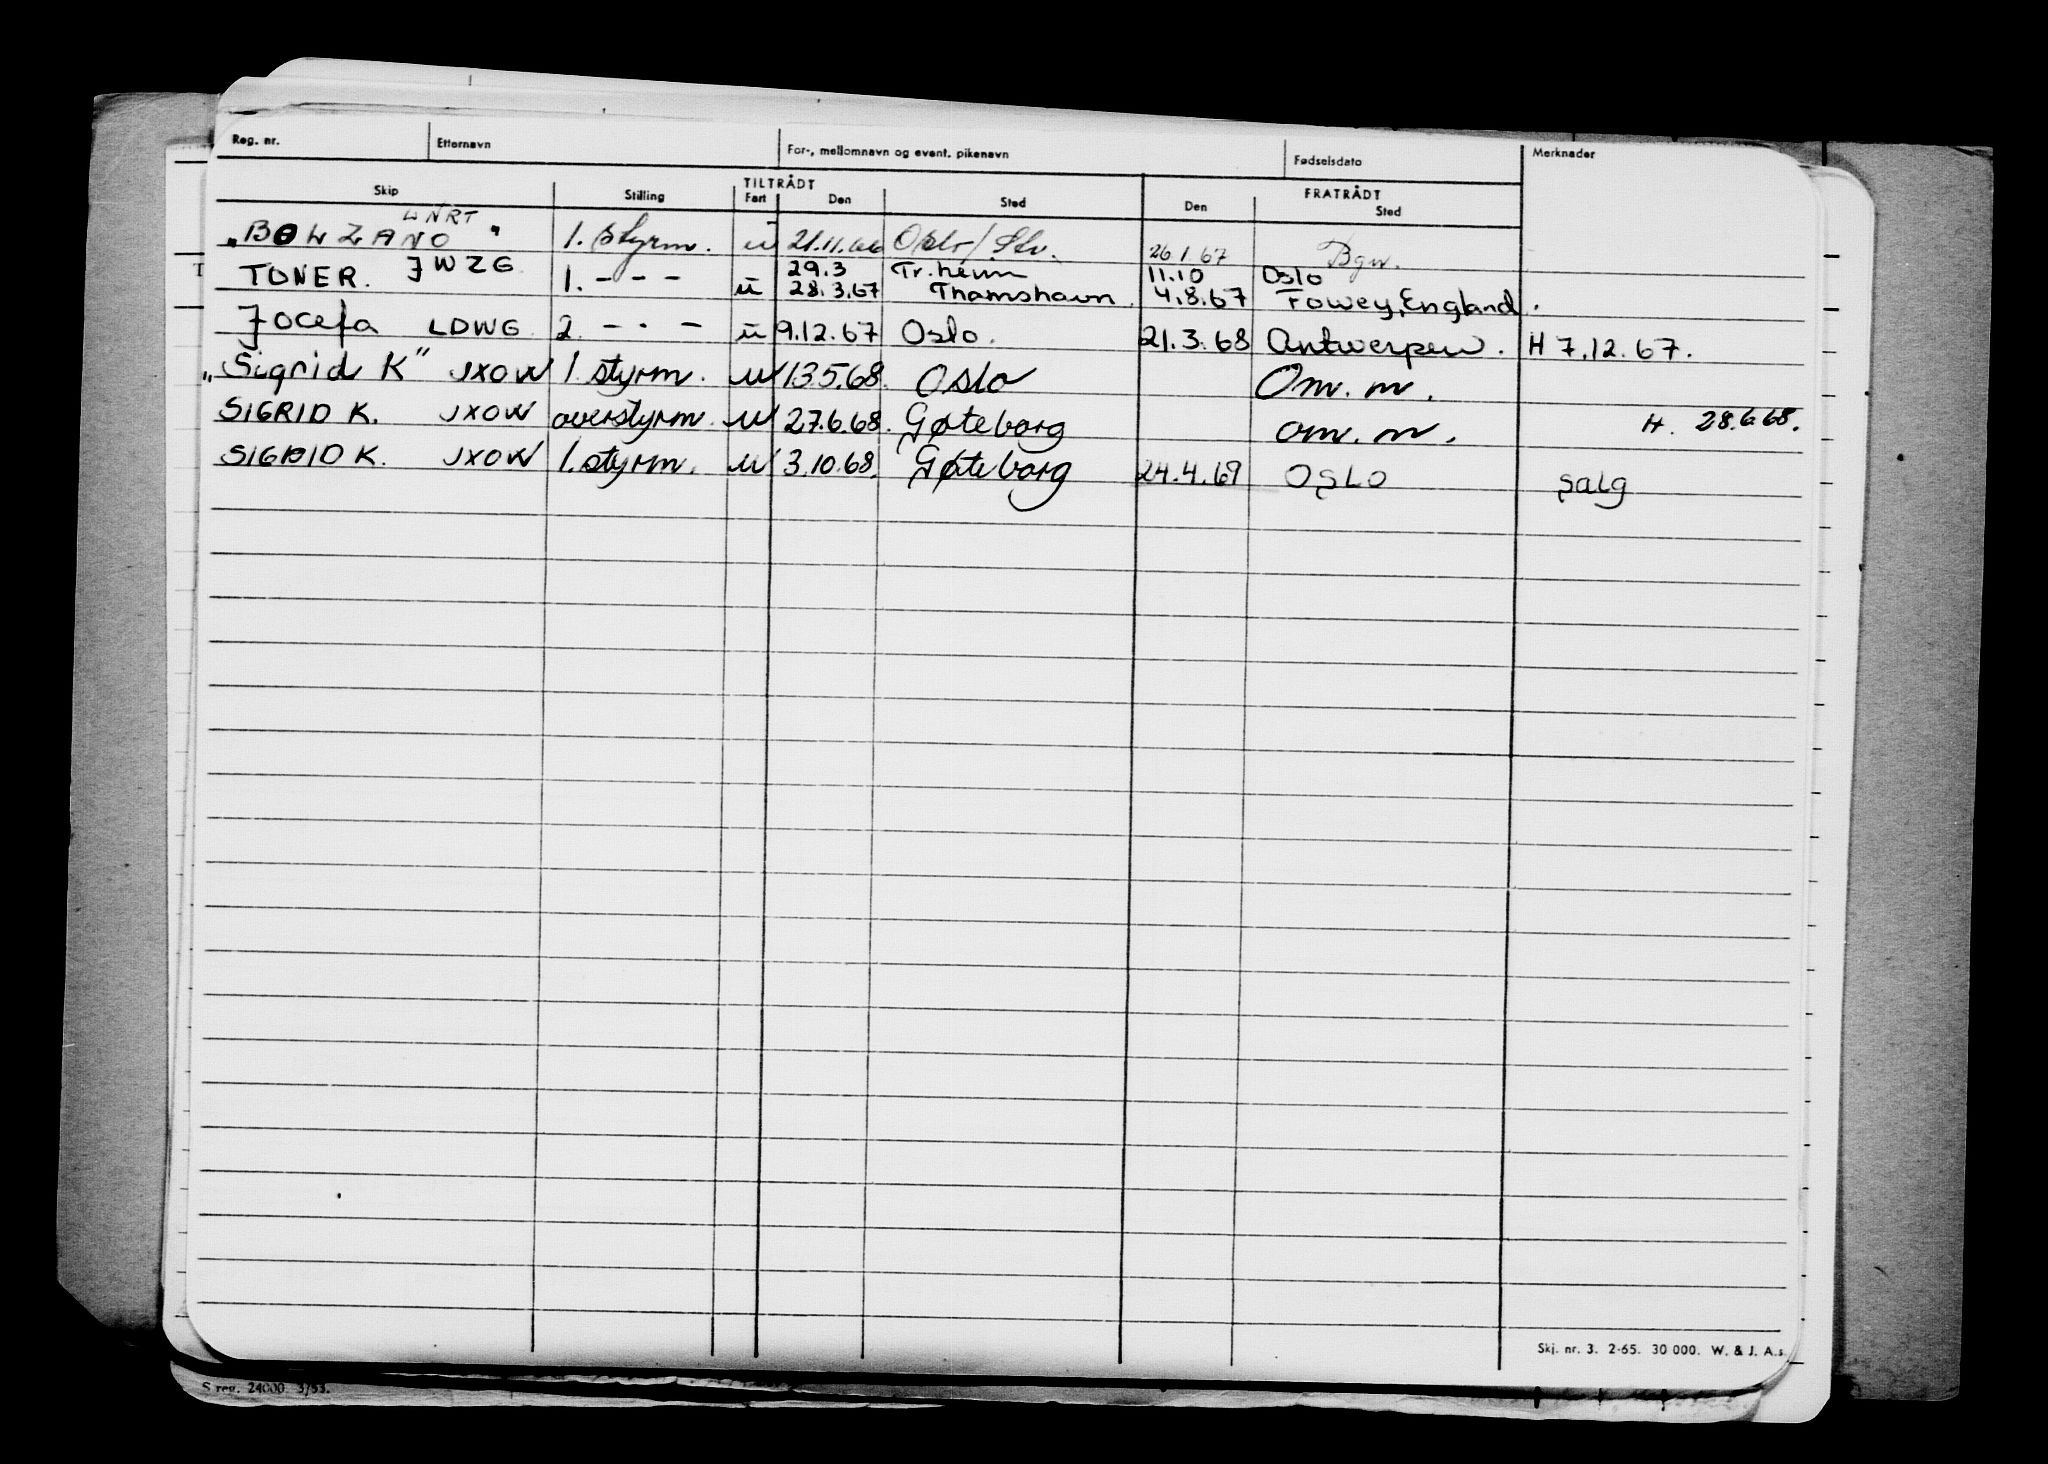 Reg. nr. Etternavn For-, mellomnavn og event. pikenavn Fødselsdato Merknader
TILTRÅDT FRATRÅDT
Skip Stilling Fart Den Sted Den Sted
LNRT
"BOLZANO" 1. styrm. u 21.11.66 Oslo/Slv. 26.1.67 Bgn.
29.3 Tr.heim 11.10 Oslo
TONER. JWZG 1. - - - u 28.3.67 Thamshavn. 4.8.67 Fowey, England.
Jocefa LDWG 2. - - - u 9.12.67 Oslo. 21.3.68 Antwerpen. H 7.12.67.
"Sigrid K" JXOW 1. styrm. u 13.5.68. Oslo Om. m.
SIGRID K. JXOW overstyrm. u 27.6.68. Gøteborg om. m. H. 28.6.68.
SIGRID K. JXOW 1. styrm. u 3.10.68. Gøteborg 24.4.69 OSLO Salg
Skj. nr. 3. 2-65. 30 000. W. & J. A.s.
S reg. 24000 3/53.